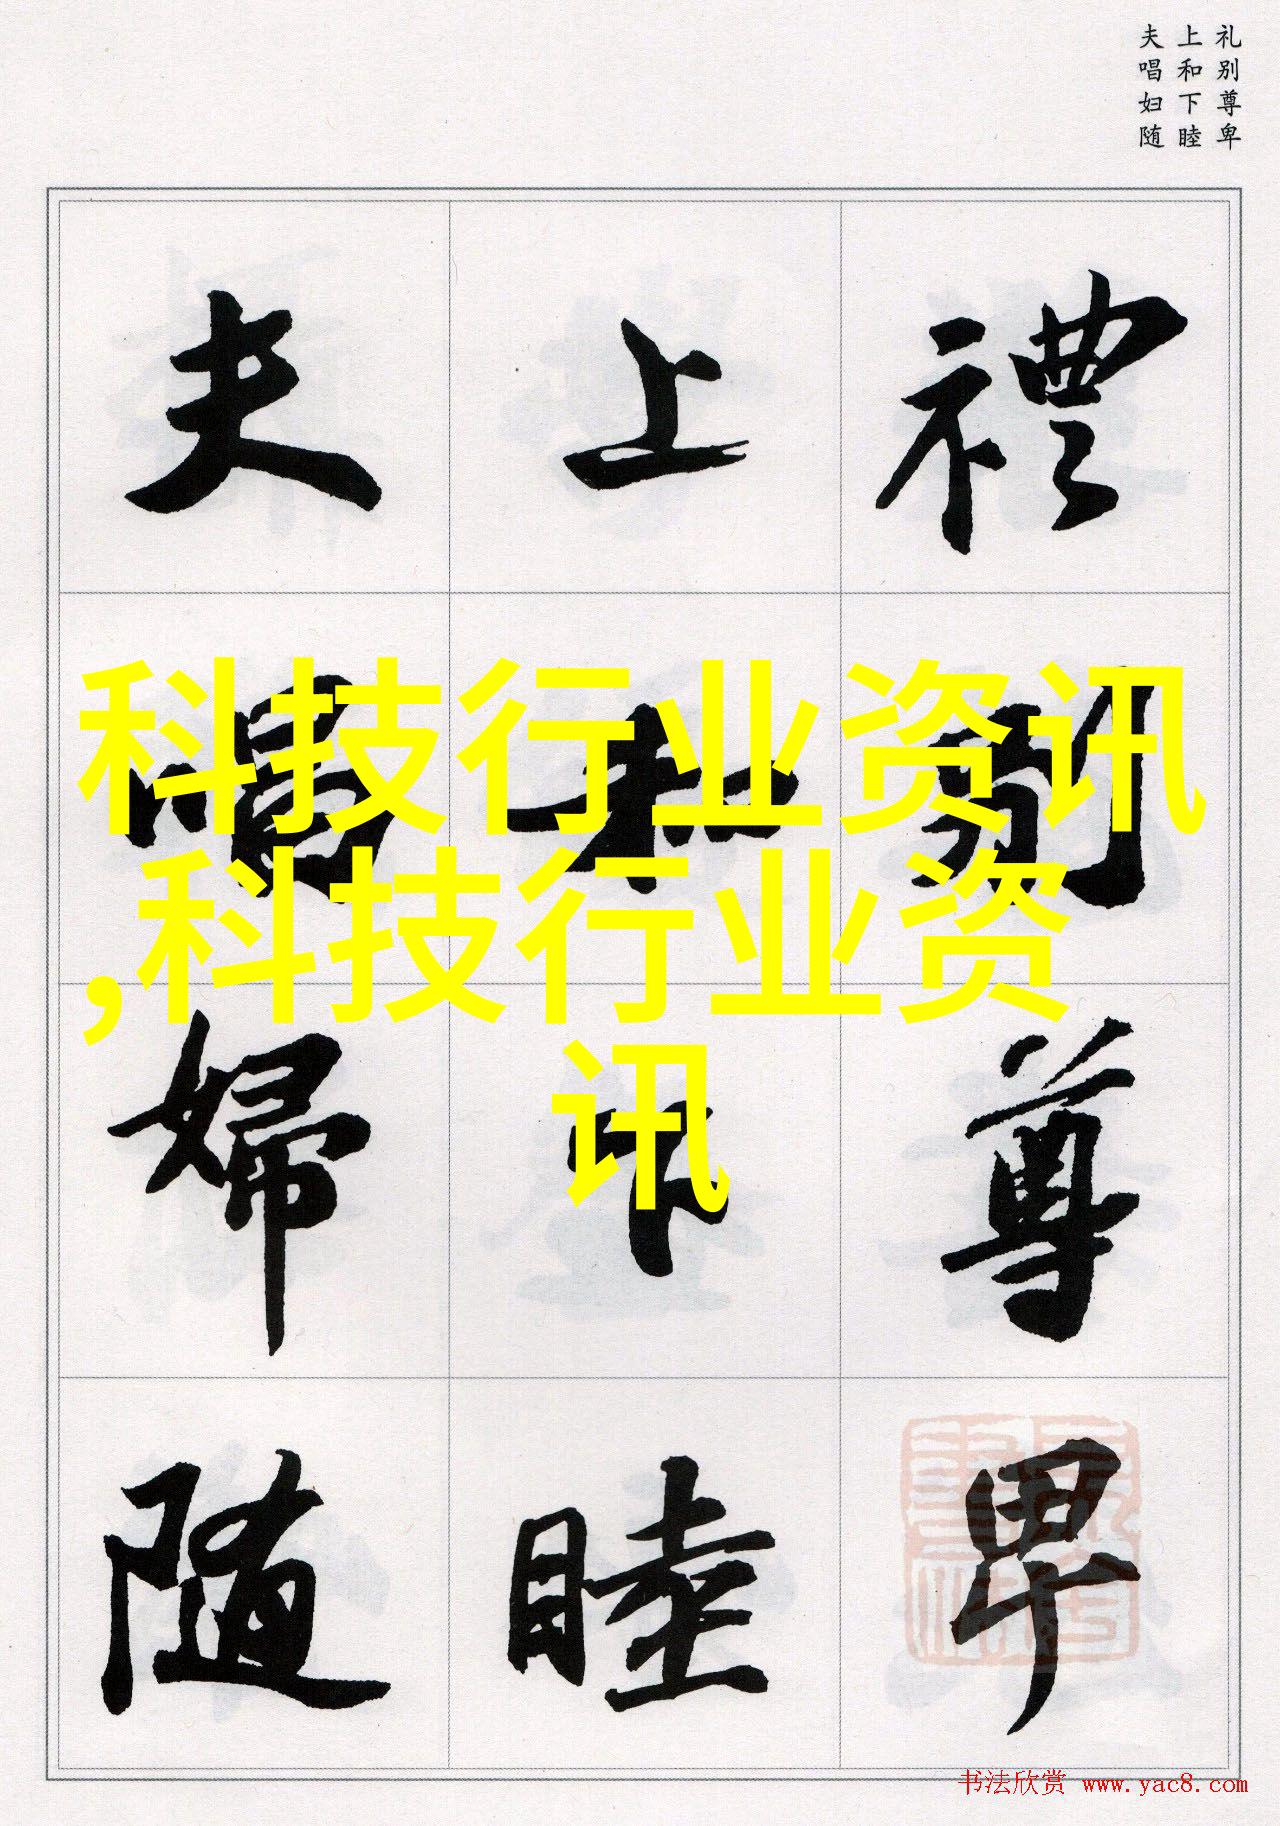 礼别尊卑
上和下睦
夫唱妇随
禮别尊卑
上和下睦
夫唱婦随
科技行业资讯
,科技行业资
讯
书法欣赏 www.yac8.com